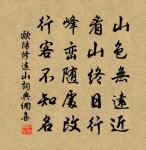 山色無遠近
看山終日行
峰巒隨處改
行客不知名
歐陽修遠山詞典網集